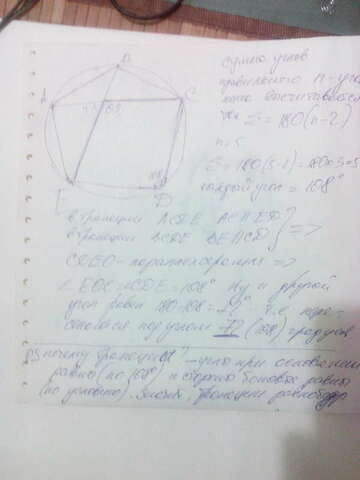 B
Сумма углов
A
C
правильного n-уго
72
108
Σ = 180(n-2)
n=5
108
Σ = 180(5-2) = 180×3=5
E
D
каждый угол = 108°
в трапеции ACDE AC||ED
в трапеции BCDE BE||CD
=>
CDEO - параллелограмм =>
∠EOC=∠CDE=108° Ну и другой
угол равен 180-108=72° т.е. пере-
под углом 72 (108) градусов
PS почему трапеция? - углы при основании
равны (по 108°) и стороны боковые равны
(по условию). Значит, трапеция